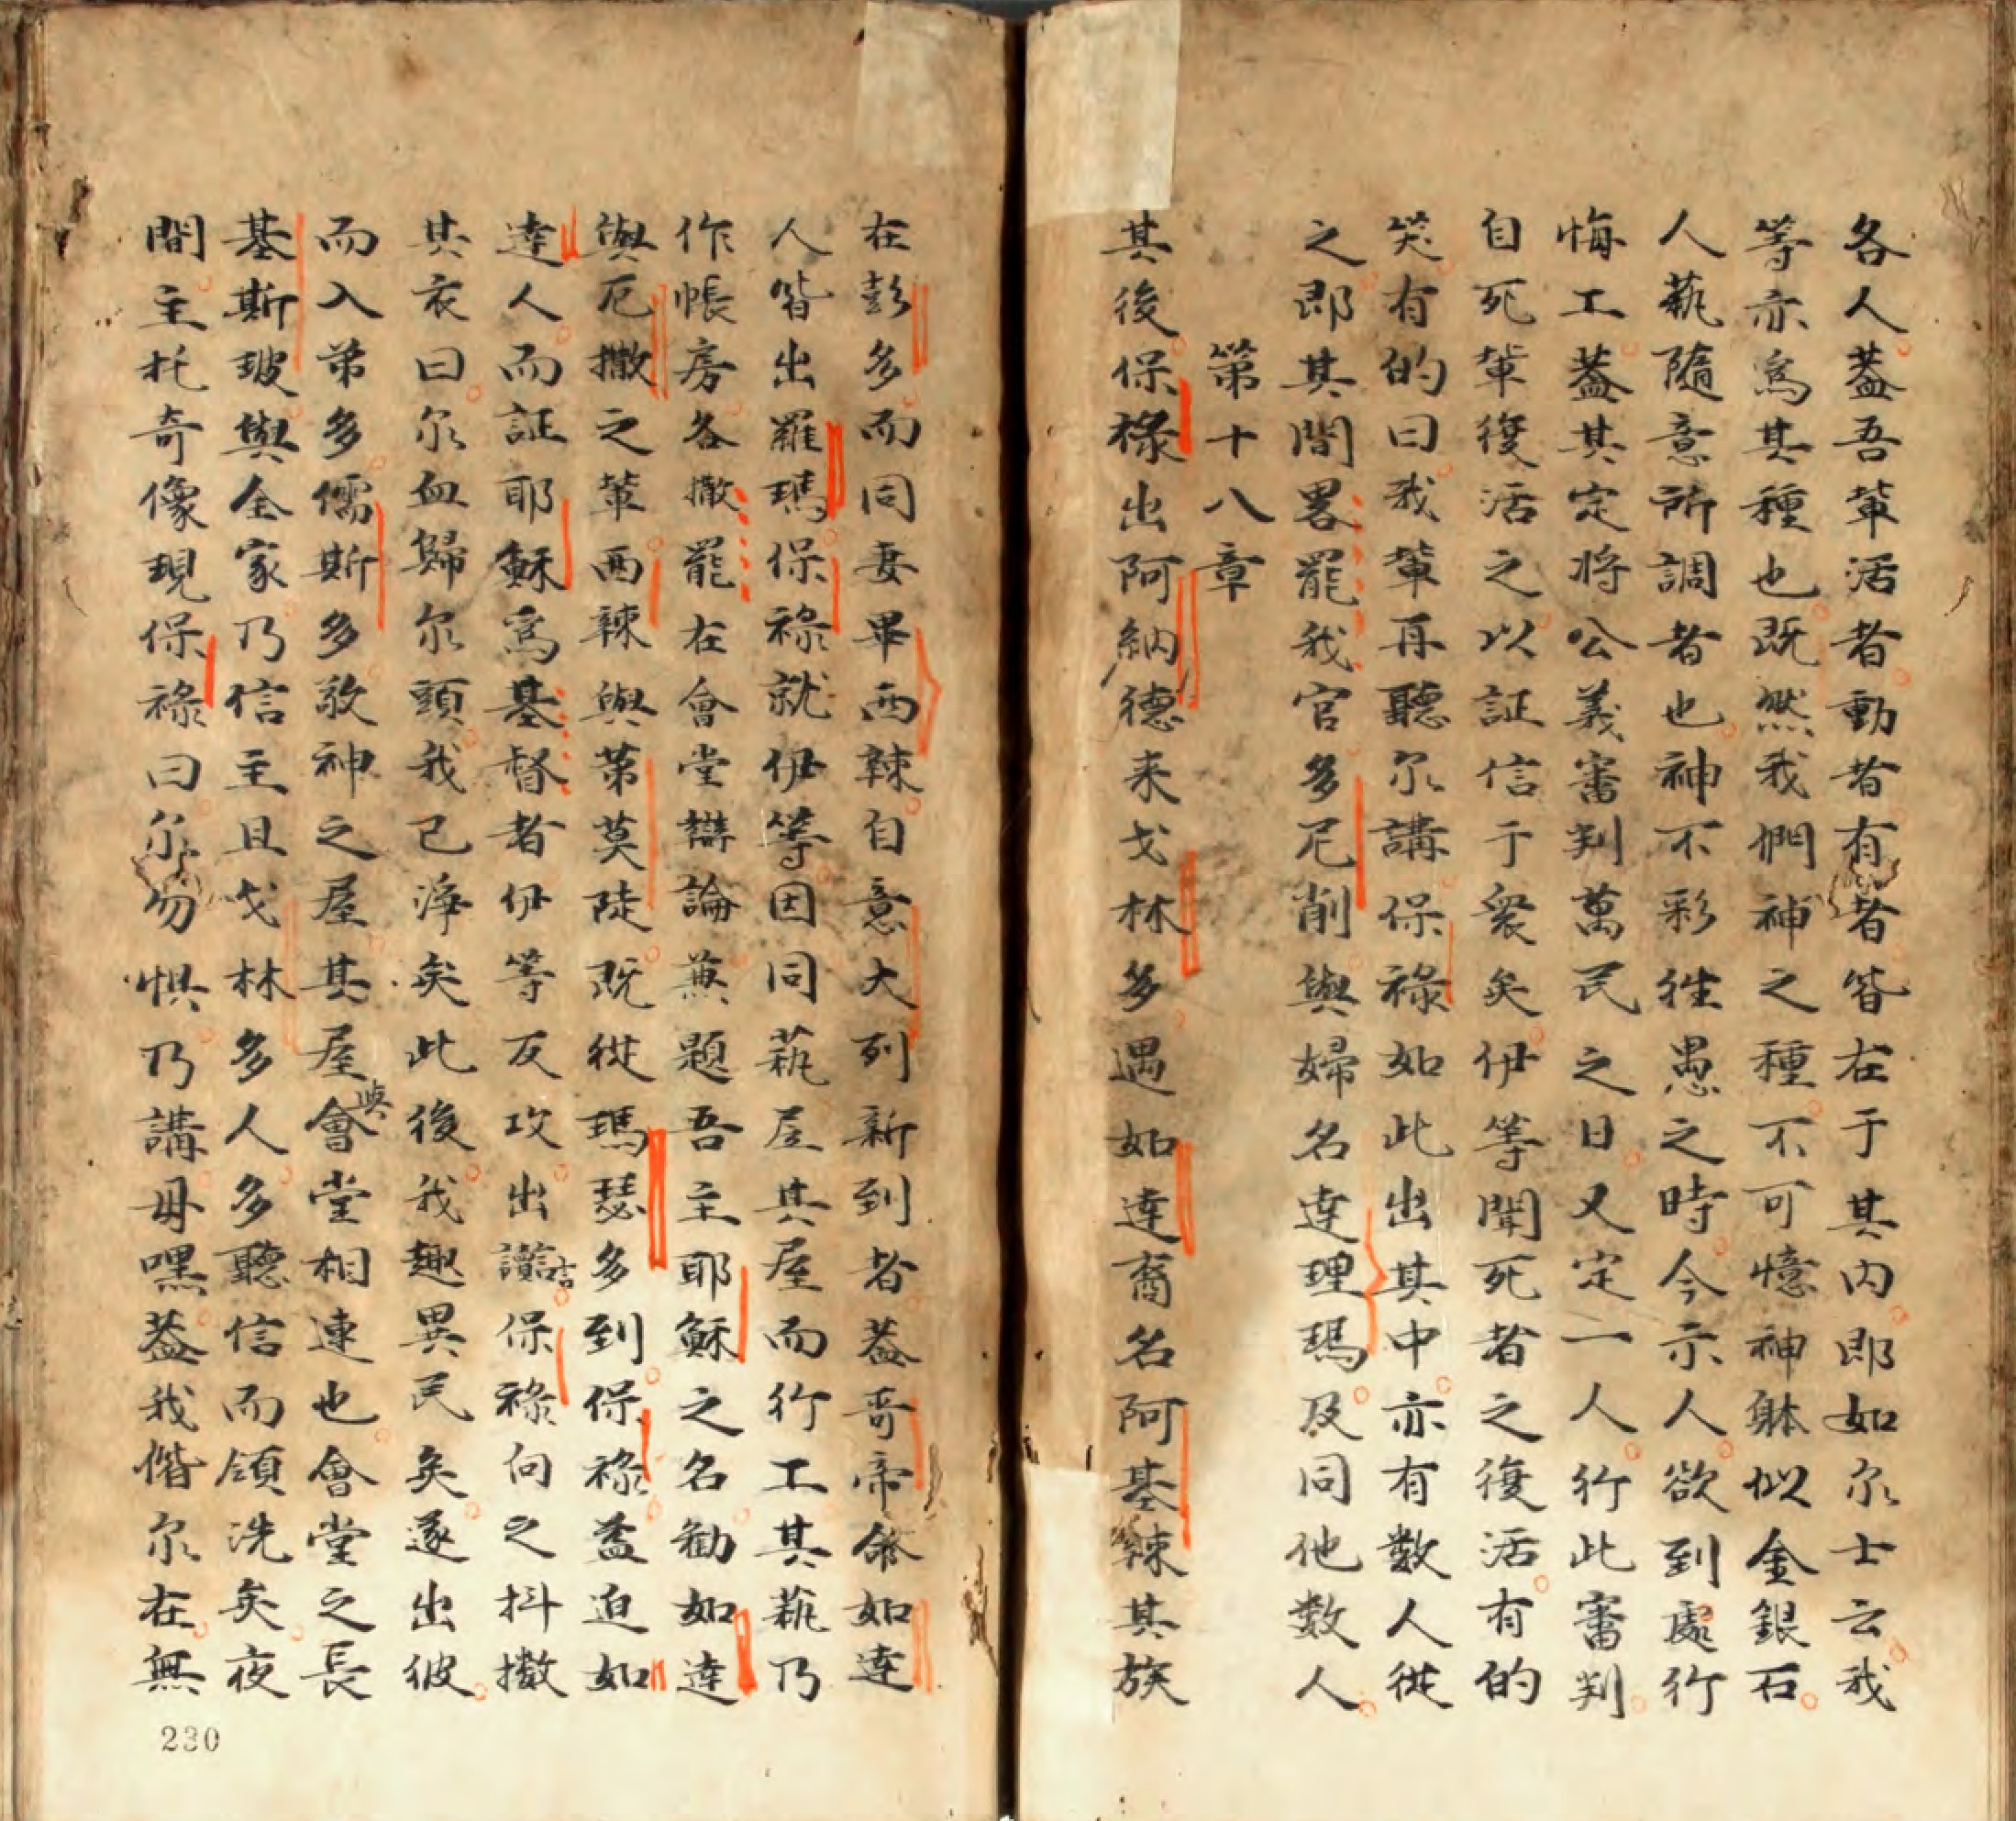 各人蓋吾輩活者動者有者皆在于其内即如尔士云我
等亦為其種也既然我們神之種不可憶神躰似金銀石
人藝隨意所調者也神不彩徃愚之時今示人欲到處行
悔工蓋其定将公義審判萬民之日又定一人行此審判
自死輩復活之以証信于衆矣伊等聞死者之復活有的
笑有的曰我輩再聽尔講保祿如此出其中亦有数人従
之即其間畧罷我官多尼削與婦名達理瑪及同他数人
第十八章
其後保祿出阿納德来戈林多遇如達裔名阿基辣其族
在彭多而同妻畢西辣自意大列新到者蓋哥帝命如達
人皆出羅瑪保祿就伊等因同藝居其屋而行工其藝乃
作帳房各撒罷在會堂辯論兼題吾主耶穌之名勸如達
與厄撒之輩西辣與第莫陡既従瑪瑟多到保祿蓋迫如
達人而証耶穌為基督者伊等反攻出讟言保祿向之抖撒
其衣曰尔血歸尔頭我已淨矣此後我趣異民矣遂出彼
而入弟多儒斯多敬神之屋其屋與會堂相連也會堂之長
基斯玻與全家乃信主且戈林多人多聽信而領洗矣夜
間主托奇像現保祿曰尔勿惧乃講毋嘿蓋我偕尔在無
230